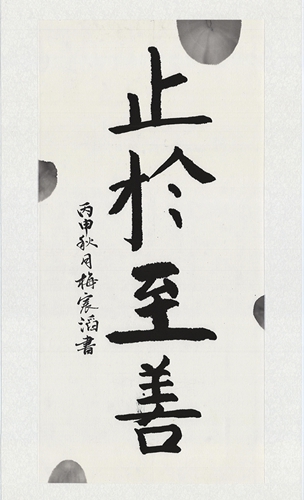 止於至善
丙申秋月梅宸滔書